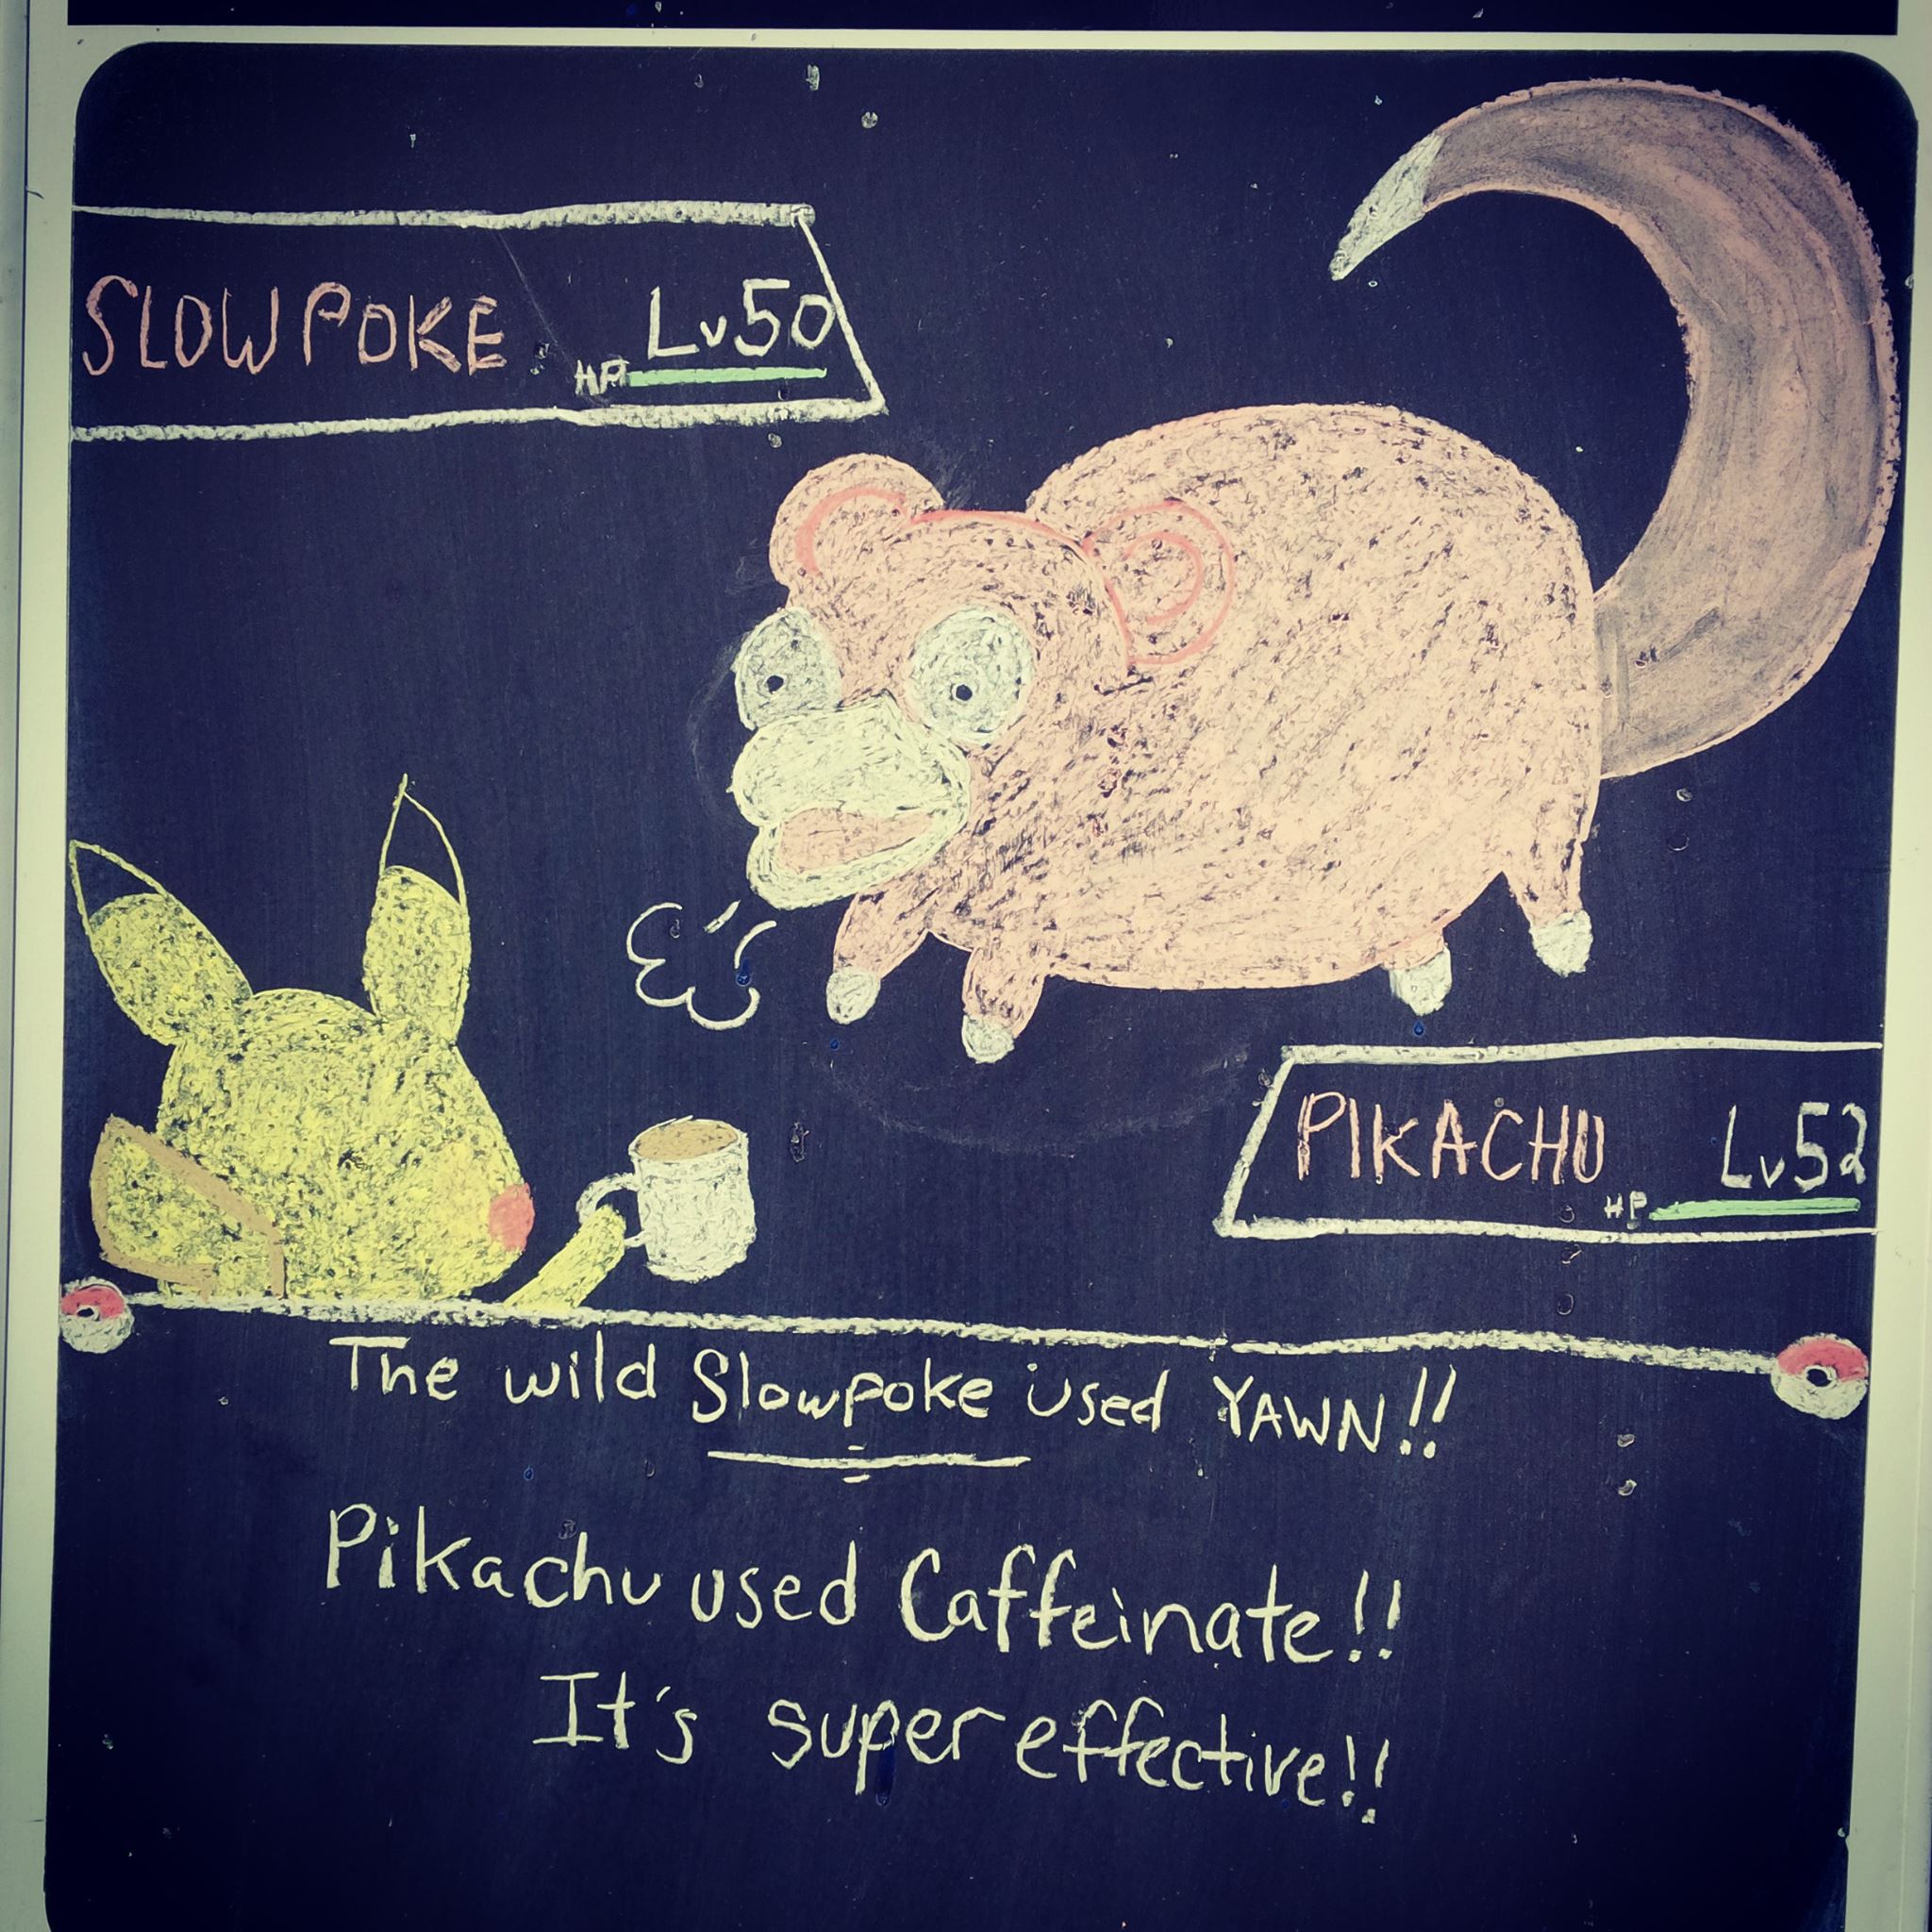 SLOWPOKE Lv50
HP
PIKACHU Lv52
HP
The wild Slowpoke used YAWN!!
Pikachu used Caffeinate!!
It's super effective!!